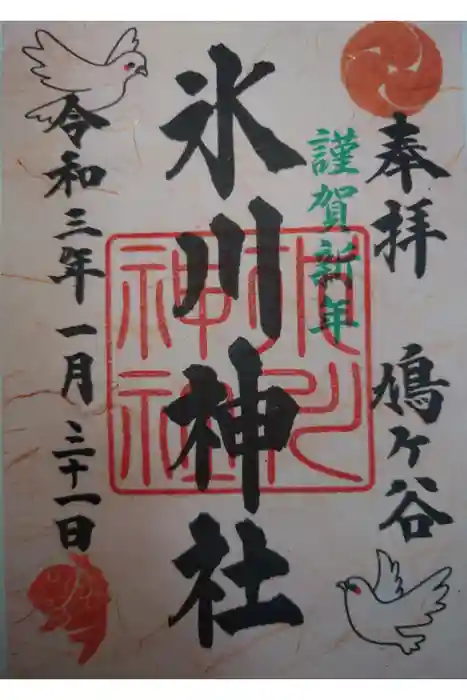 奉拝 鳩ヶ谷
謹賀新年
氷川神社
令和三年一月三十一日
氷川神社